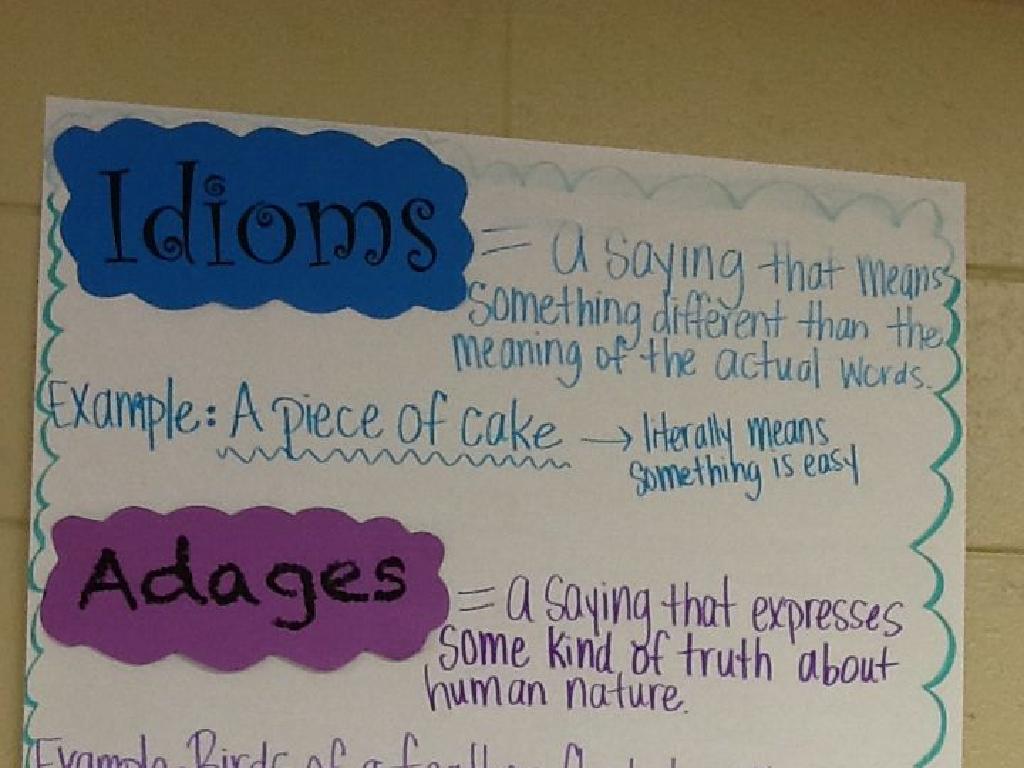 Idioms = a saying that means
something different than the
meaning of the actual words.
Example: A piece of cake → literally means
something is easy
Adages = a saying that expresses
some kind of truth about
human nature.
Example Birds of a